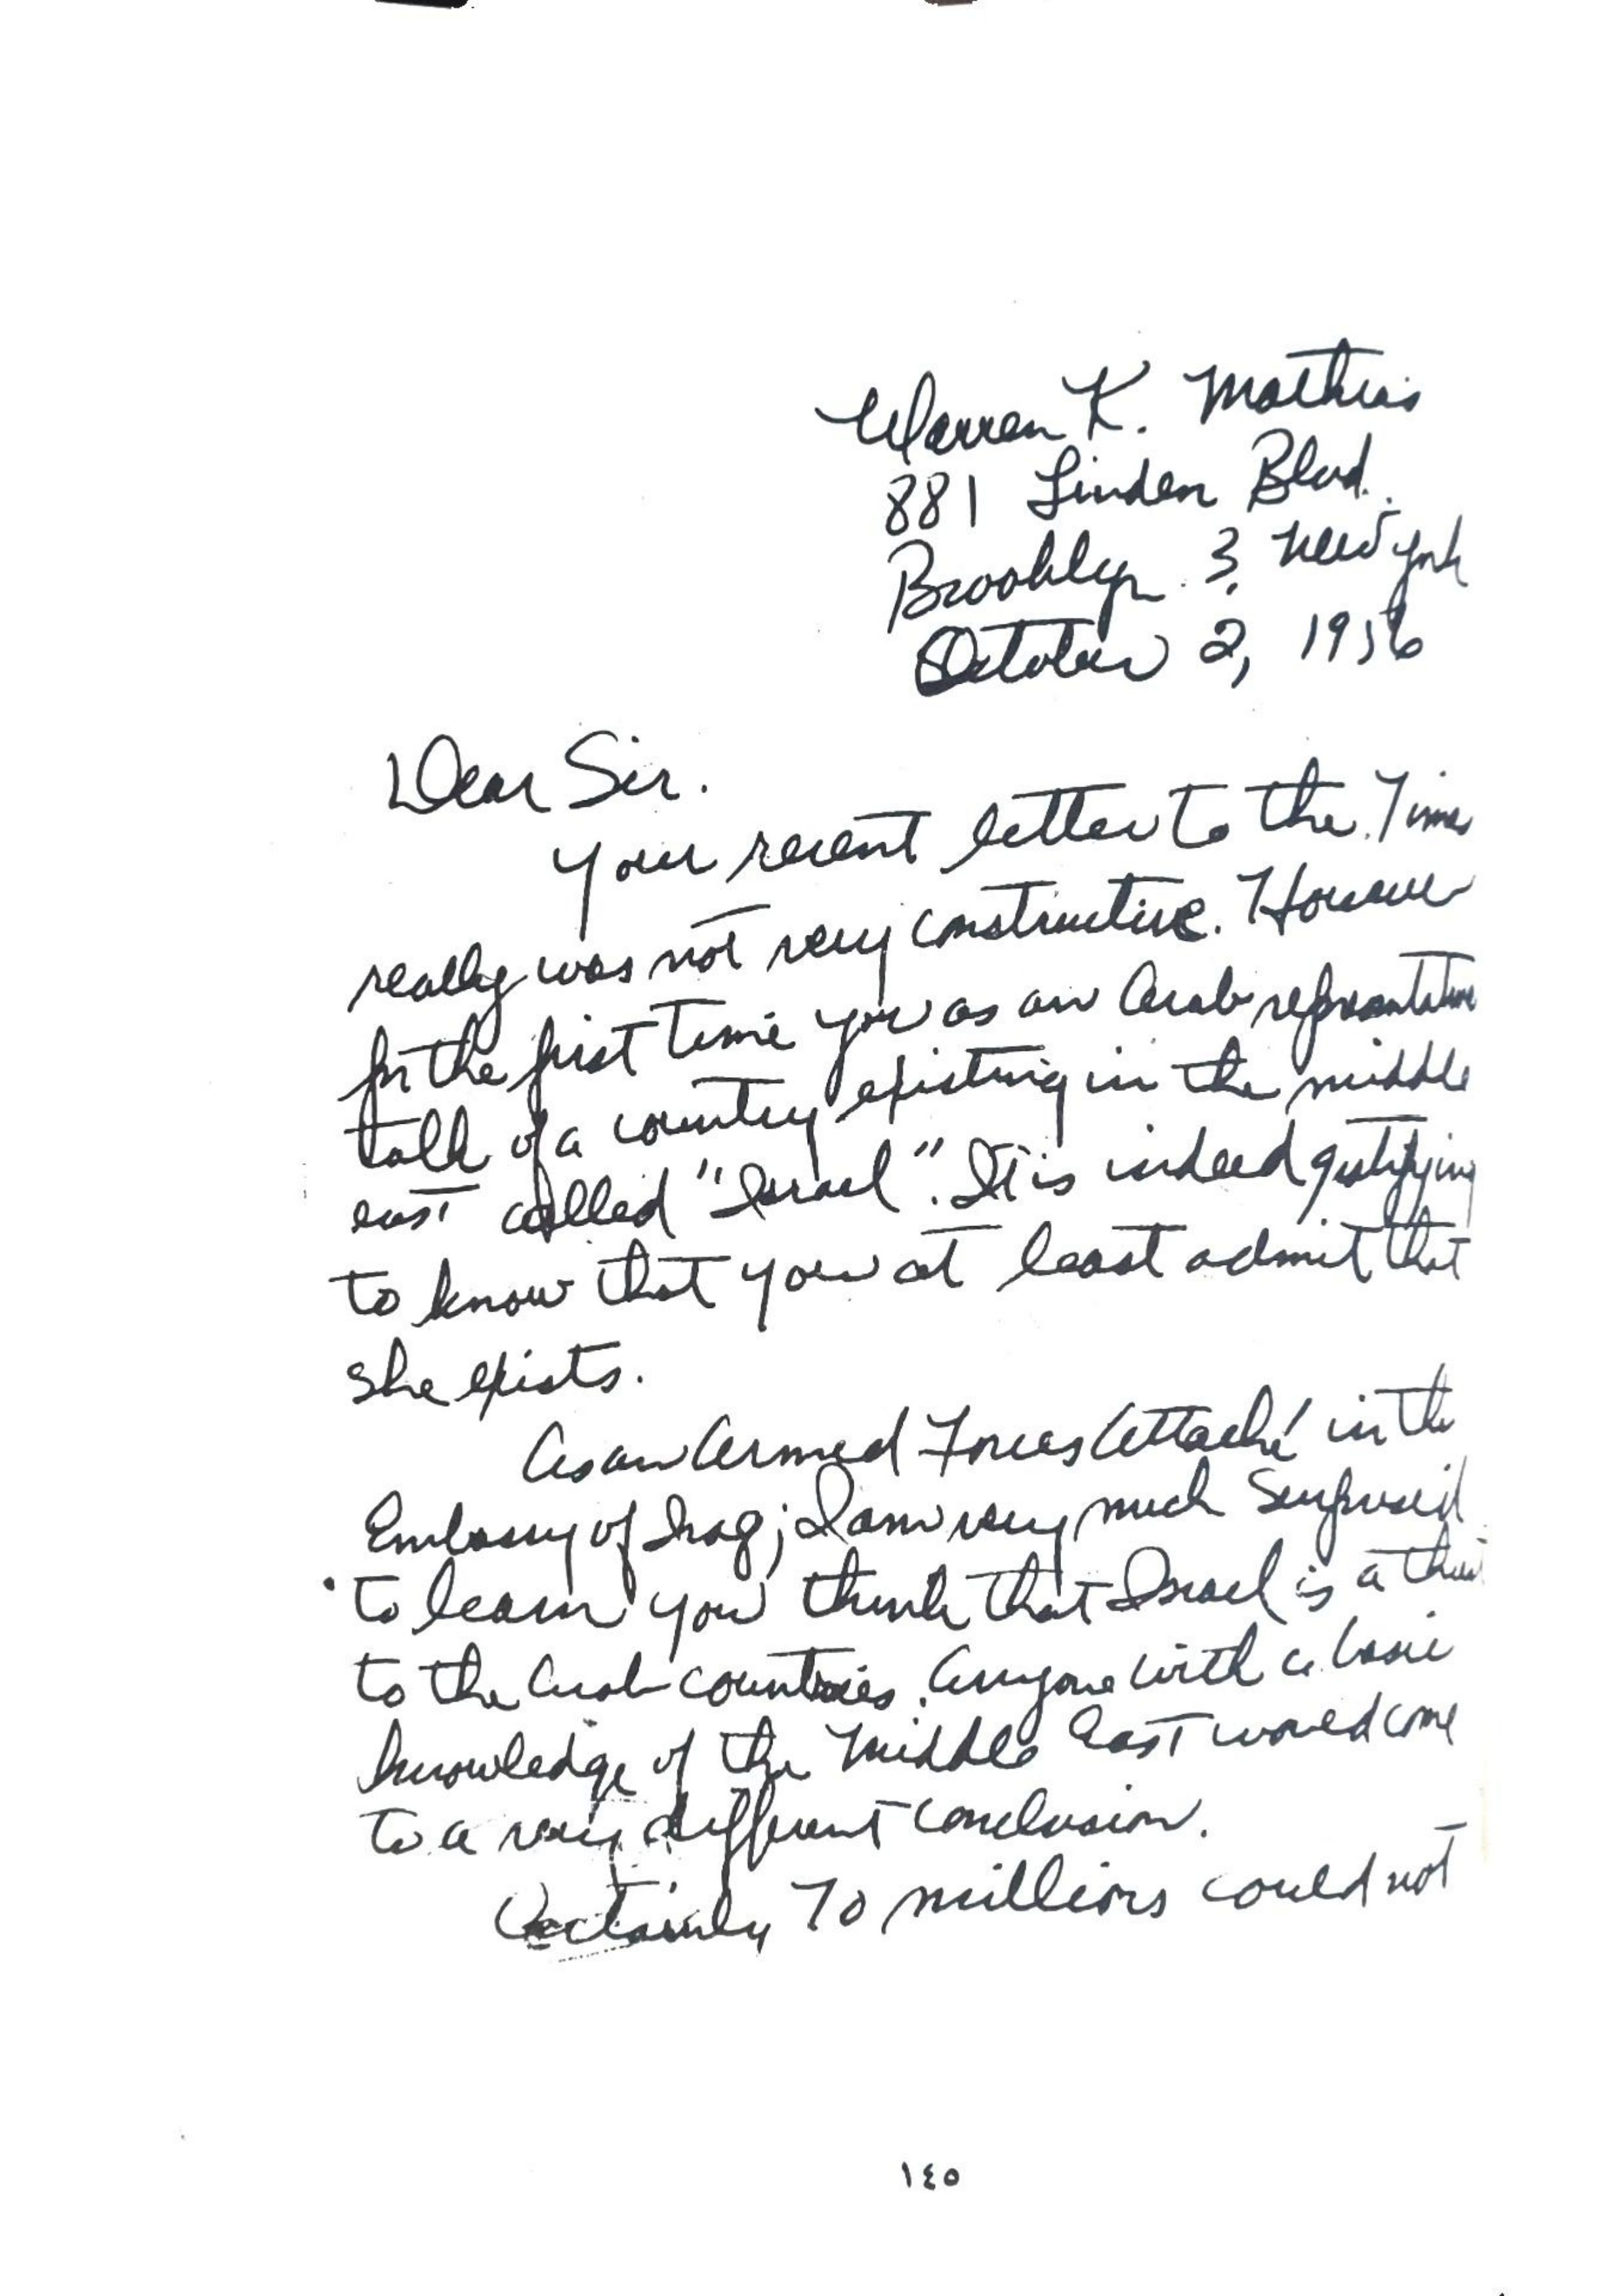 Warren K. Mathias
881 Linden Blvd.
Brooklyn 3, New York
October 2, 1956
Dear Sir.
Your recent letter to the Times
really was not very constructive. However
for the first time you as an Arab representative
talk of a country existing in the middle
east called "Israel". It is indeed
to know that you at least admit that
she exists.
As an Armed Forces Attaché in the
Embassy of Iraq; I am very much surprised
to learn you think that Israel is a threat
to the Arab countries. Anyone with a basic
knowledge of the Middle East would come
to a very different conclusion.
Certainly 70 millions could not
١٤٥